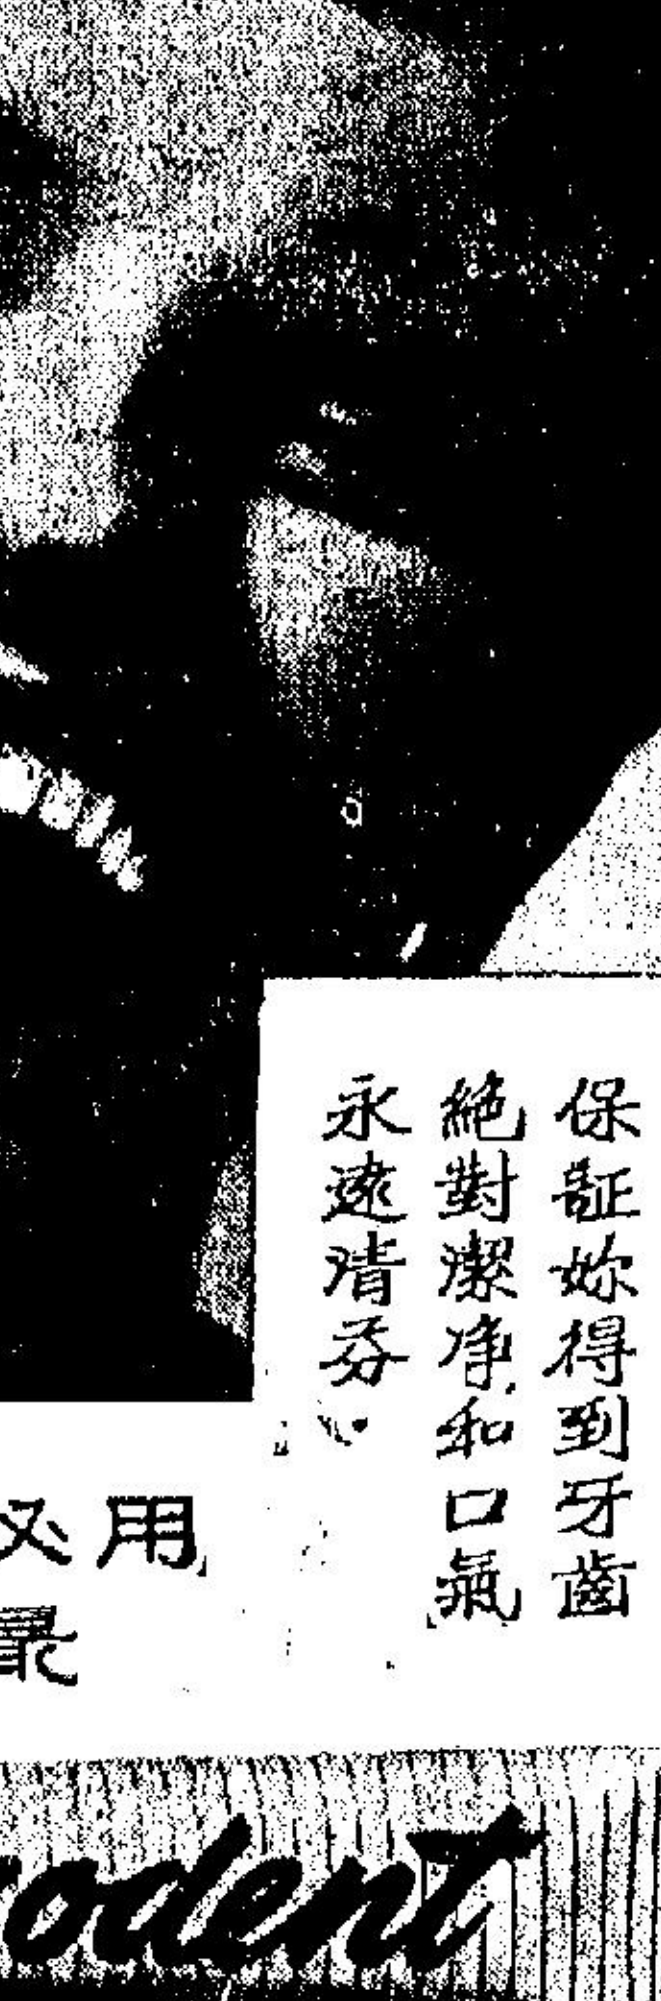 保証妳得到牙齒
絕對潔净和口氣
永遠清芬
必用
最
odent